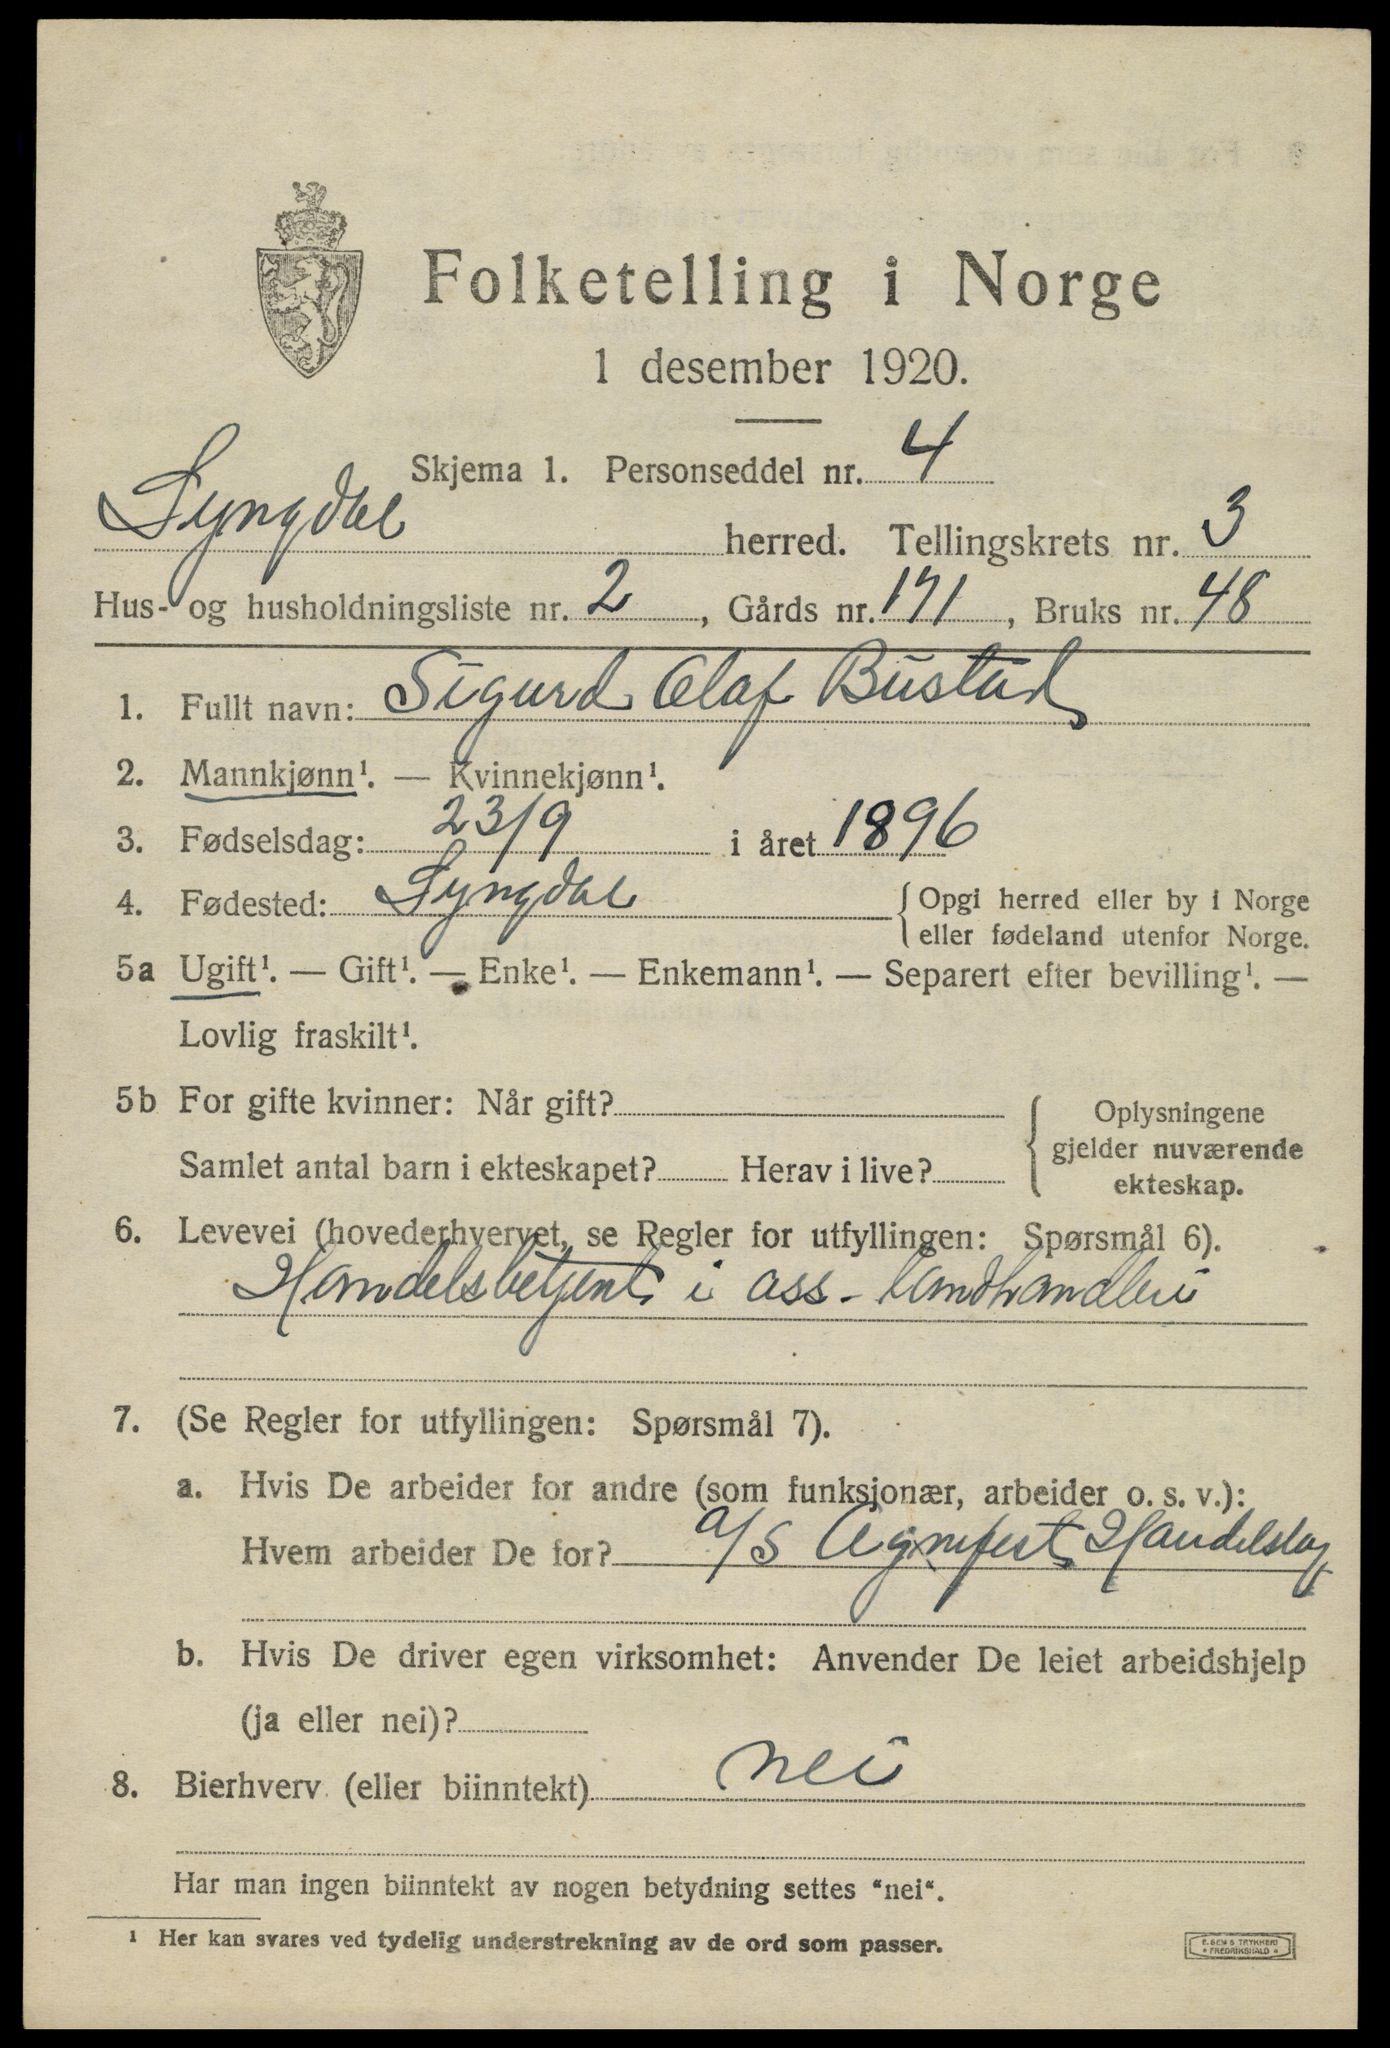 Folketelling i Norge
1 desember 1920.
Skjema 1. Personseddel nr. 4
Lyngdal herred. Tellingskrets nr. 3
Hus- og husholdningsliste nr. 2, Gårds nr. 171, Bruks nr. 48
1. Fullt navn: Sigurd Olaf Bustad
2. Mannkjønn¹. — Kvinnekjønn¹.
3. Fødselsdag: 23/9 i året 1896
4. Fødested: Lyngdal { Opgi herred eller by i Norge
eller fødeland utenfor Norge.
5a Ugift¹. — Gift¹. — Enke¹. — Enkemann¹. — Separert efter bevilling¹. —
Lovlig fraskilt¹.
5b For gifte kvinner: Når gift?
Samlet antal barn i ekteskapet? Herav i live?
{ Oplysningene
gjelder nuværende
ekteskap.
6. Levevei (hovederhvervet, se Regler for utfyllingen: Spørsmål 6).
Handelsbetjent i ass. landhandleri
7. (Se Regler for utfyllingen: Spørsmål 7).
a. Hvis De arbeider for andre (som funksjonær, arbeider o. s. v.):
Hvem arbeider De for? a/s Agnefest Handelslag
b. Hvis De driver egen virksomhet: Anvender De leiet arbeidshjelp
(ja eller nei)?
8. Bierhverv (eller biinntekt) nei
Har man ingen biinntekt av nogen betydning settes “nei“.
¹ Her kan svares ved tydelig understrekning av de ord som passer.
E. SEM'S TRYKKERI
FREDRIKSHALD